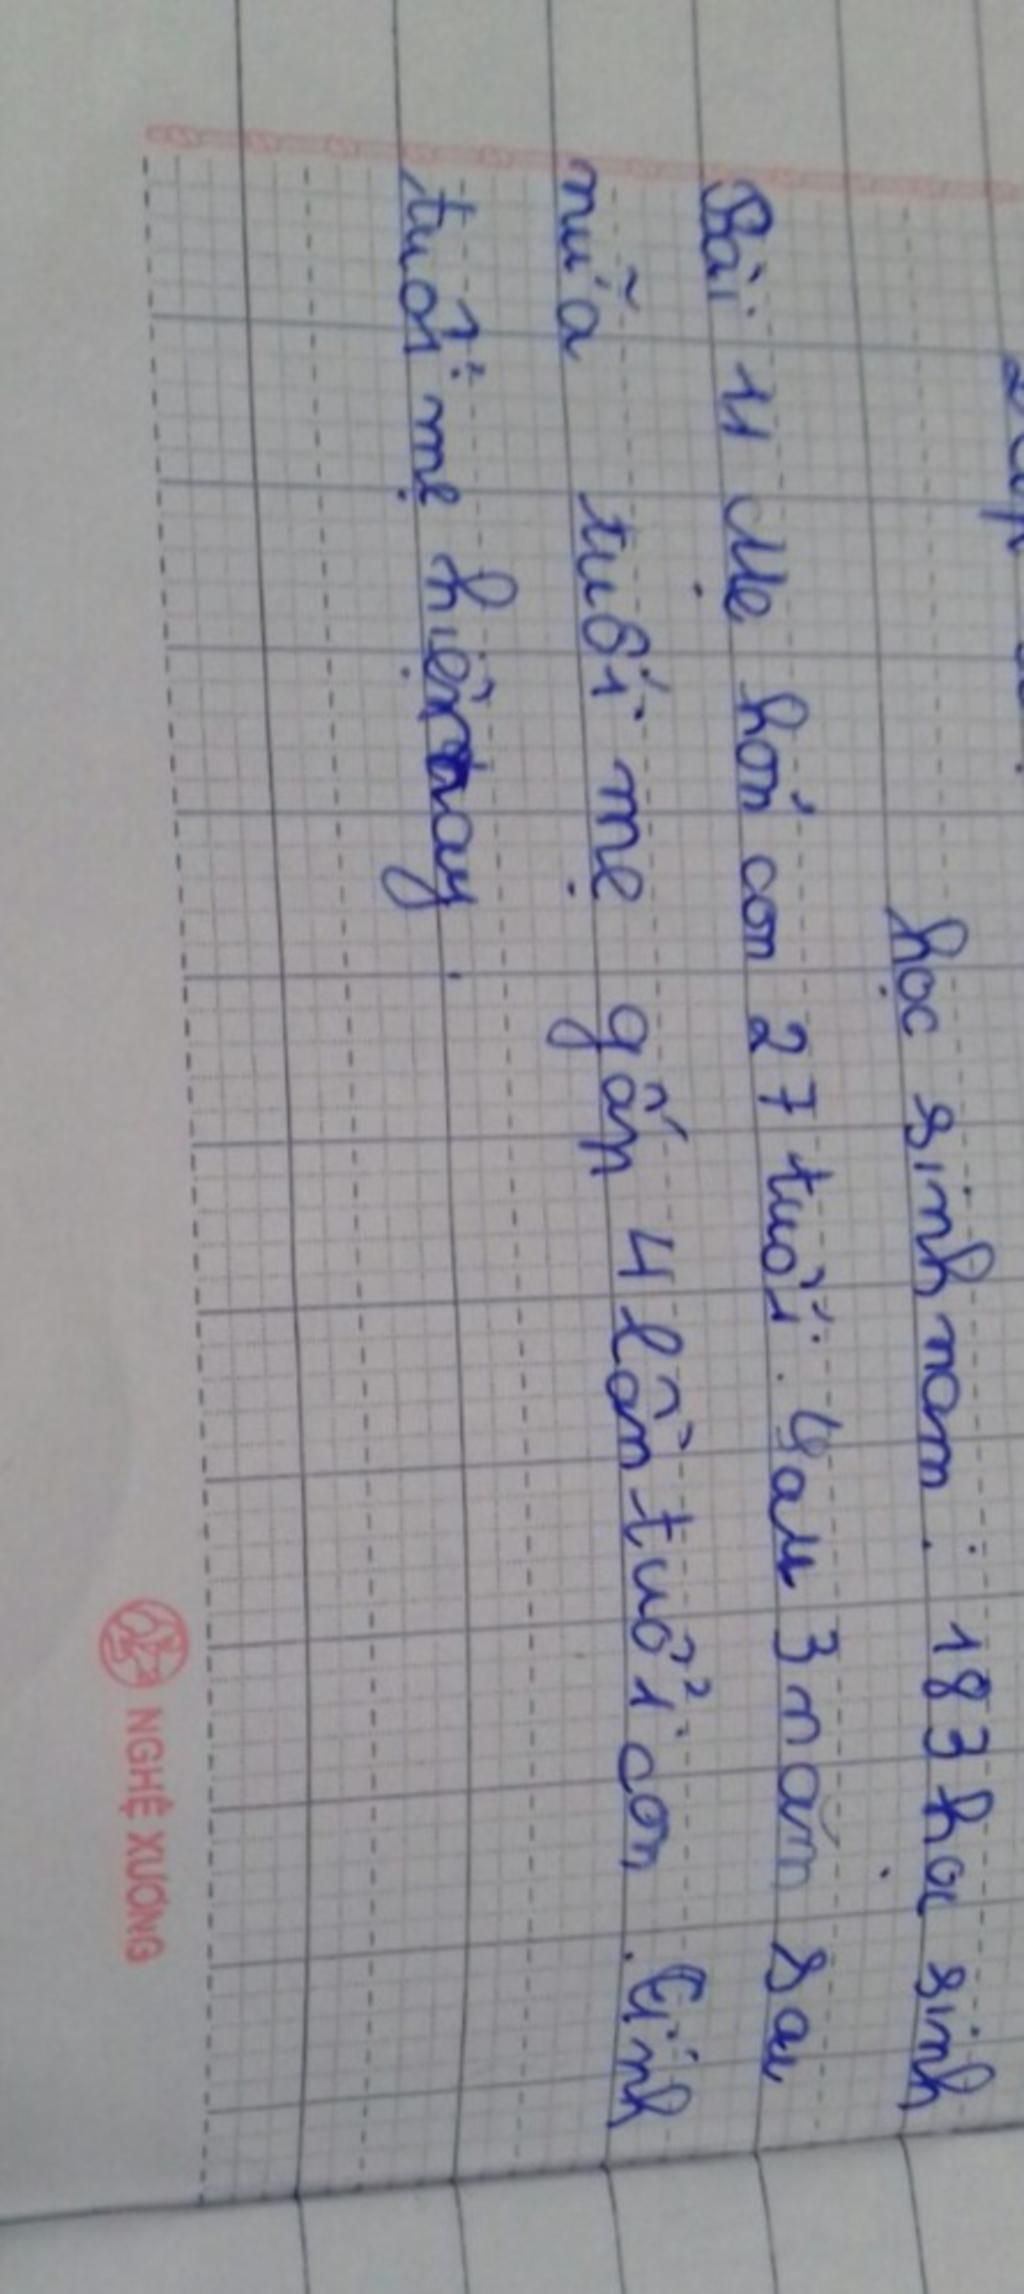 học sinh nam : 183 học sinh
Bài 11 Mẹ hơn con 27 tuổi. Sau 3 năm sau
nữa tuổi mẹ gấp 4 lần tuổi con. Tính
tuổi mẹ hiện nay.
NGHỆ XUONG